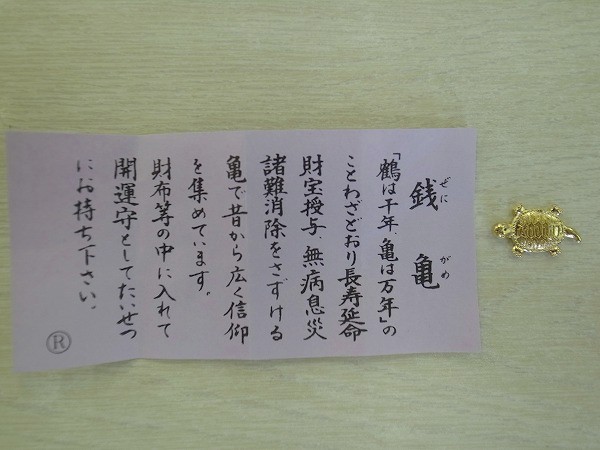 銭亀
ぜにがめ
「鶴は千年、亀は万年」の
ことわざどおり長寿延命
財宝授与、無病息災
諸難消除をさずける
亀で昔から広く信仰
を集めています。
財布等の中に入れて
開運守としてたいせつ
にお持ち下さい。
®